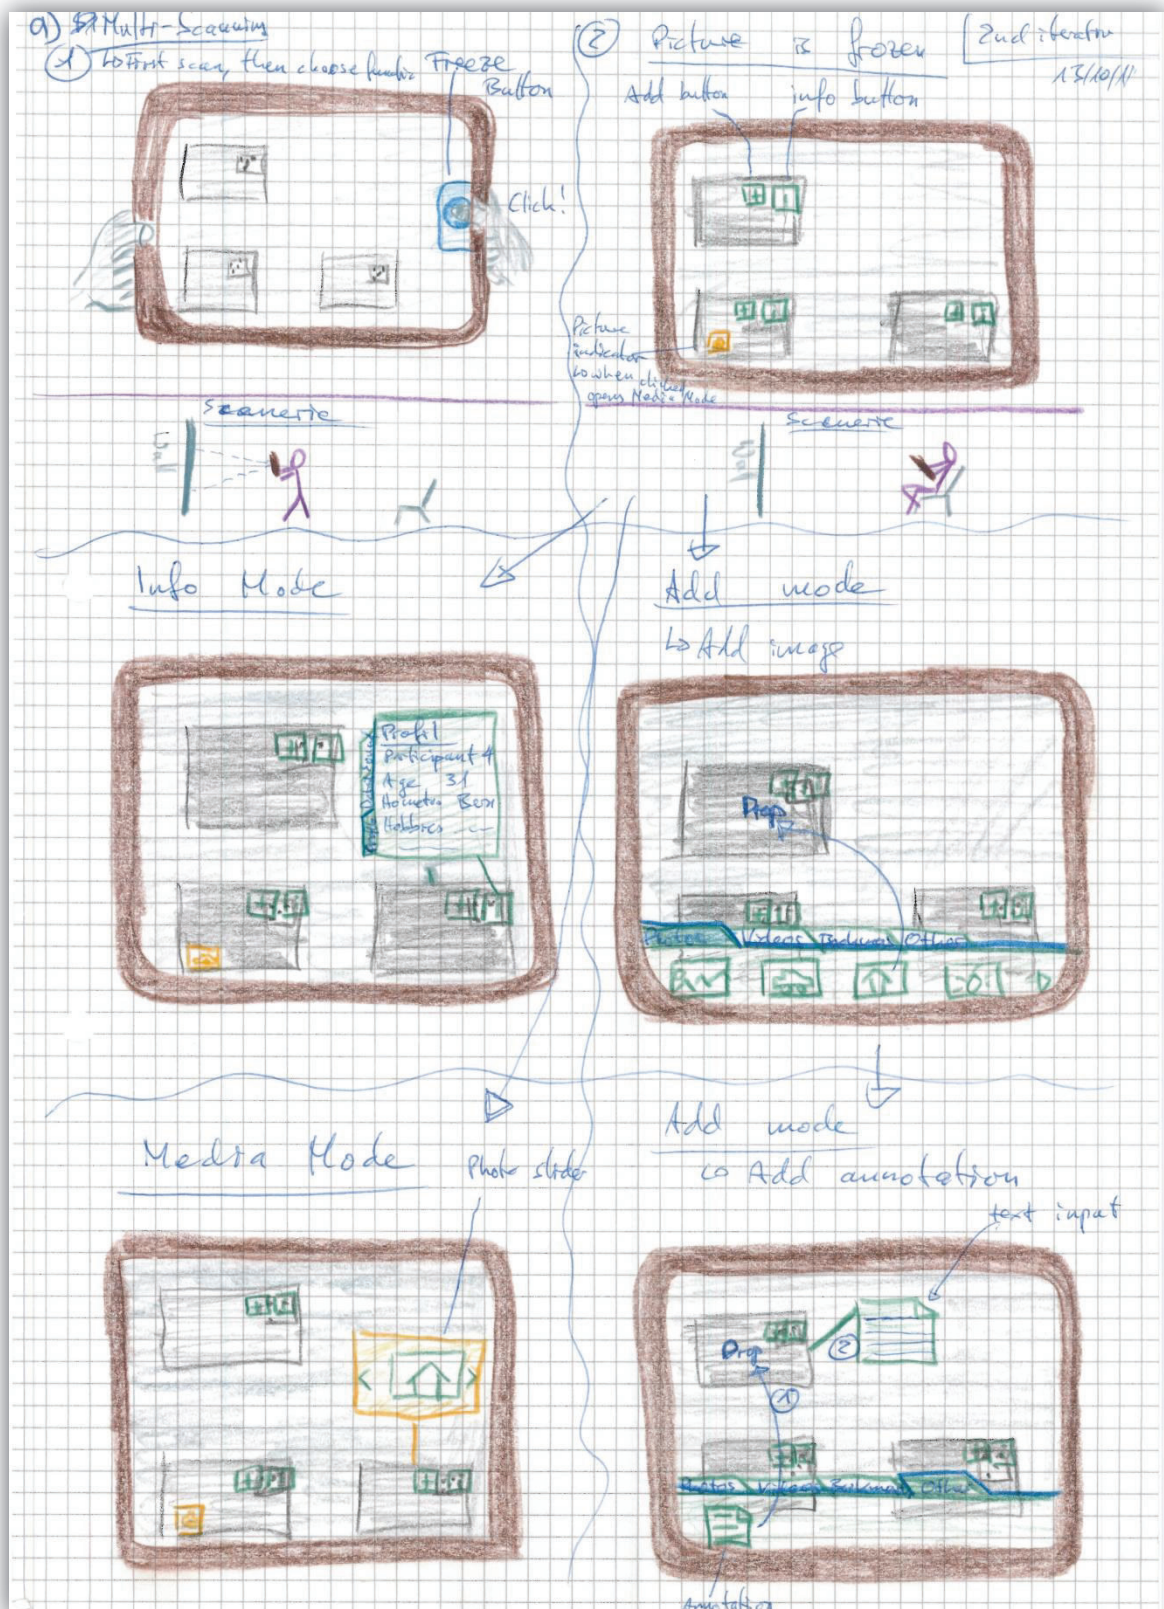 a) Multi-Scanning
① ↳ First scan, then choose
Freeze
Button
Click!
Scenerie
② Picture is frozen
2nd iteration
13/10/11
Add button
info button
Picture
indicator
↳ when clicked
opens Media Mode
Scenerie
Info Mode
Profil
Participant 4
Age 31
Hometown Bern
Hobbies
Add mode
↳ Add image
Drop
Photos Videos Other
Media Mode
Photo slider
Add mode
↳ Add annotation
text input
Drop
①
②
Photos Videos Other
Annotation